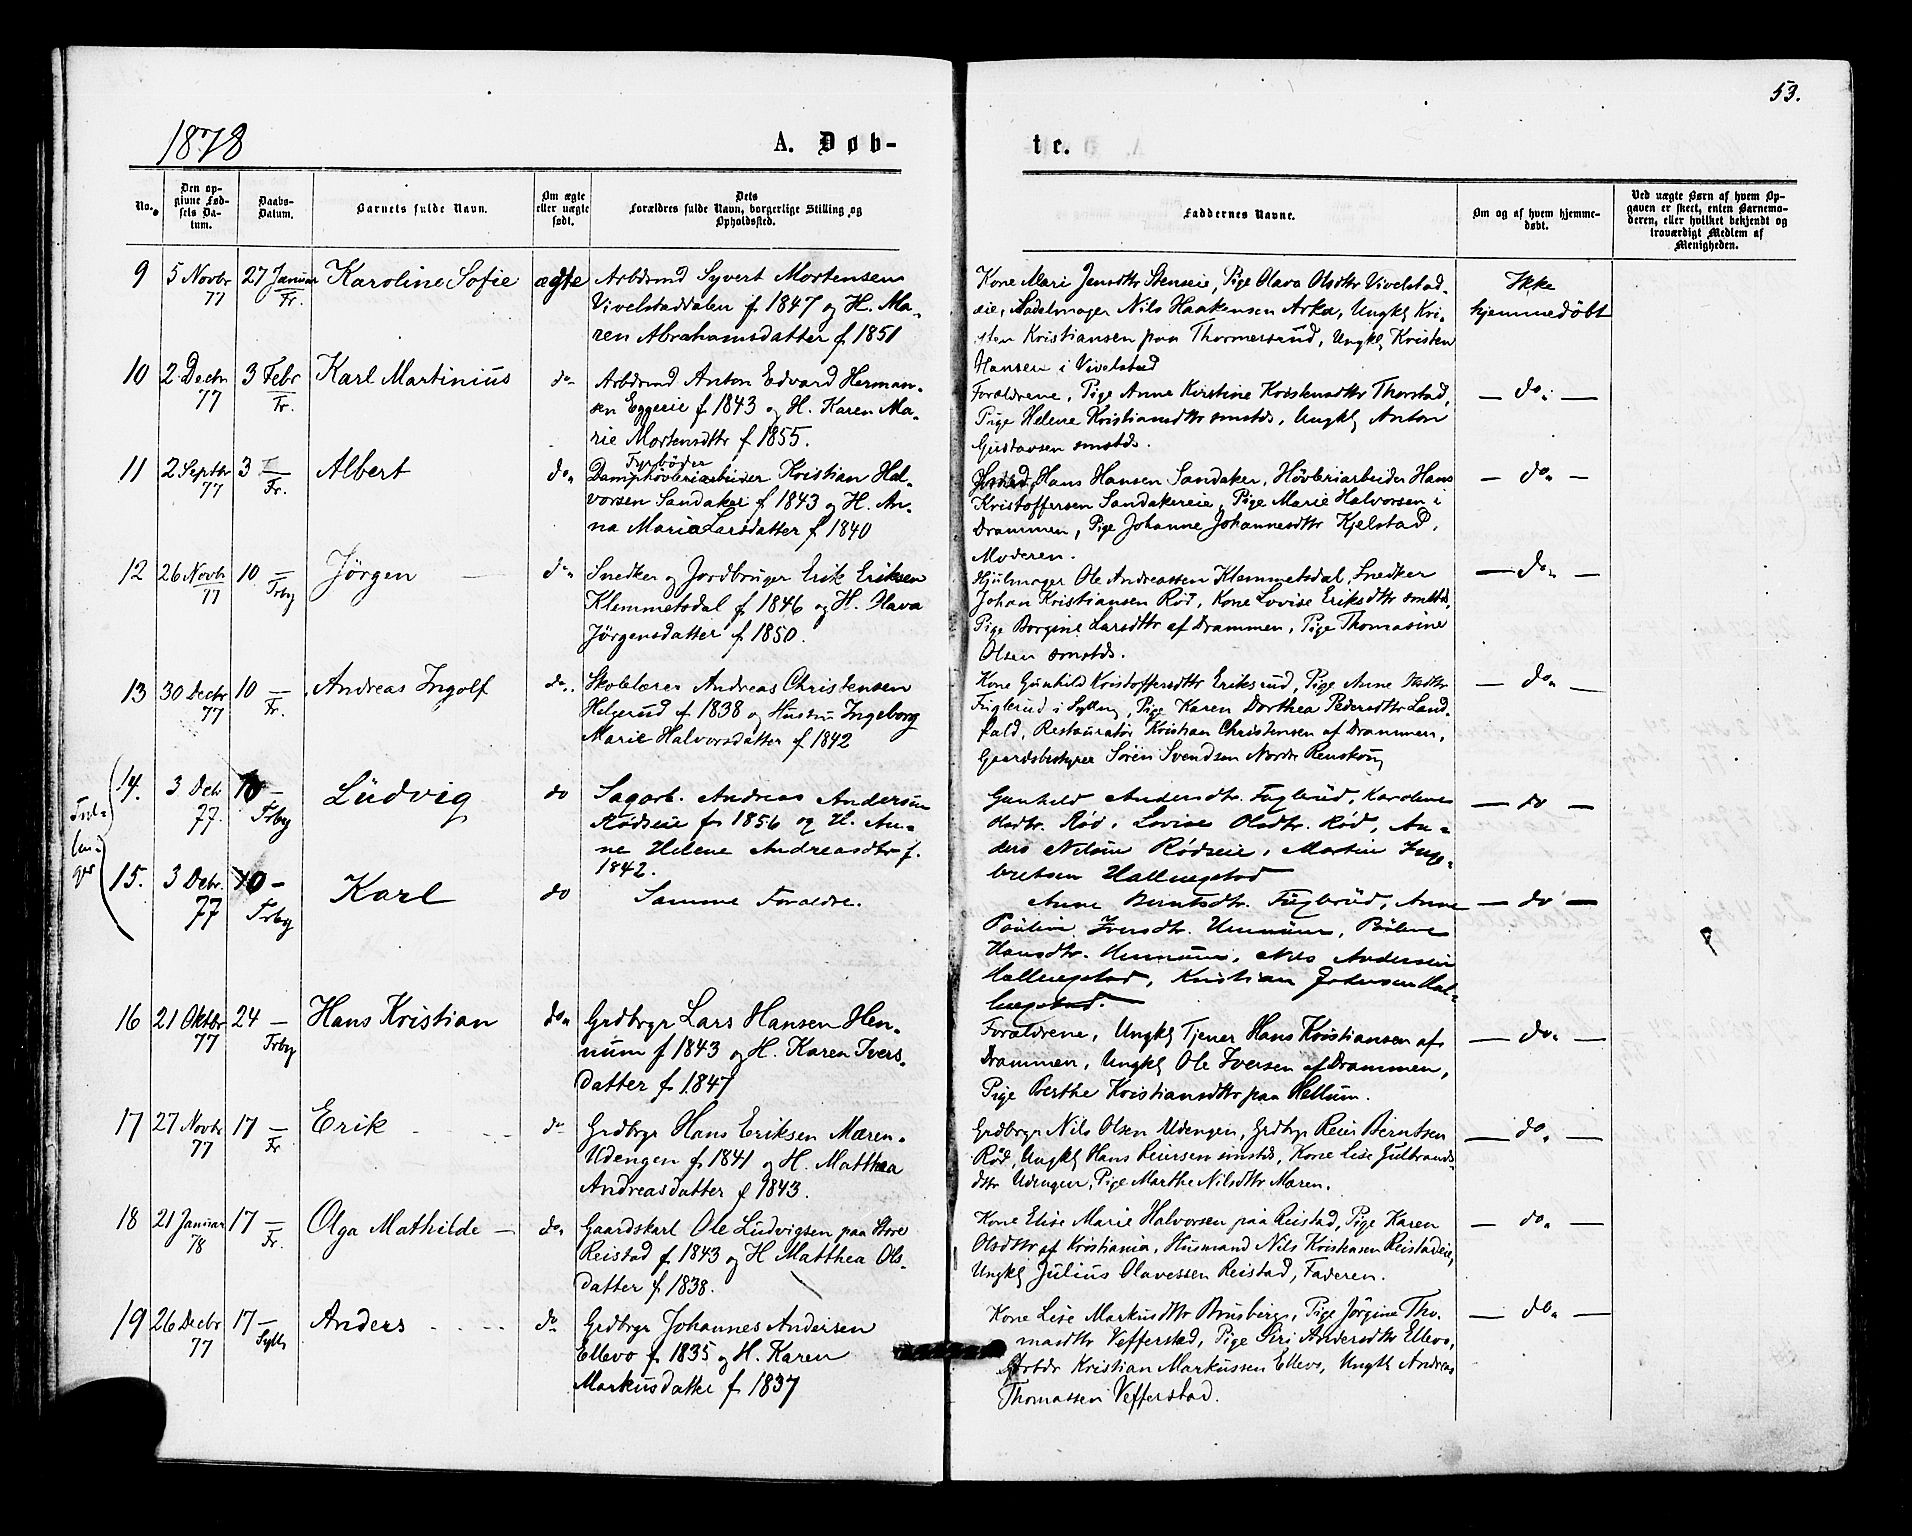 53.
1878
A. Døb-
te.
No.
Den op-
givne Fød-
sels Da-
tum.
Daabs-
Datum.
Barnets fulde Navn.
Om ægte
eller uægte
født.
Dets
Forældres fulde Navn, borgerlige Stilling og
Opholdssted.
Faddernes Navne.
Om og af hvem hjemme-
døbt.
Ved uægte Børn af hvem Op-
gaven er skeet, enten Barnemo-
deren, eller hvilket bekjendt og
troværdigt Medlem af
Menigheden.
9
5 Novbr
77
27 Januar
Fr.
Karoline Sofie
ægte
Arbdsmd Syvert Mortensen
Vivelstaddalen f 1847 og H. Ma-
ren Abrahamsdatter f 1851
Kone Mari Jensdttr Stenseie, Pige Olava Olsdttr Vivelstad-
eie, Sadelmager Nils Haakensen Arka, Ungkl Kri-
sten Kristiansen paa Thormersrud, Ungkl Kristen
Hansen i Vivelstad
Ikke
hjemmedøbt
10
2 Decbr
77
3 Febr
Fr.
Karl Martinius
do
Arbdsmd Anton Edvard Herman-
sen Eggeeie f 1843 og H. Karen Ma-
rie Mortensdttr f 1855.
Forældrene, Pige Anne Kirstine Kristensdttr Thorstad,
Pige Helene Kristiansdttr smstds, Ungkl Anton
Gustavsen smstds.
— do. —
11
2 Septbr
77
3 —
Fr.
Albert
do
Fyrbøder
Damphøvleriarbeider Kristian Hal-
vorsen Sandaker f 1843 og H. An-
na Maria Larsdatter f 1840
Hans Hansen Sandaker, Høvleriarbeider Hans
Kristoffersen Sandakereie, Pige Marie Halvorsen i
Drammen, Pige Johanne Johannesdttr Kjelstad,
Moderen.
— do —
12
26 Novbr
77
10 —
Frby
Jørgen
do
Snedker og Jordbruger Erik Eriksen
Klemmetsdal f 1846 og H. Olava
Jørgensdatter f 1850.
Hjulmager Ole Andreassen Klemmetsdal, Snedker
Johan Kristiansen Rød, Kone Lovise Eriksdttr smstds,
Pige Borgine Larsdttr af Drammen, Pige Thomasine
Olsen smstds.
— do —
13
30 Decbr
77
10 —
Fr.
Andreas Ingolf
do
Skolelærer Andreas Christensen
Helgerud f 1838 og Hustru Ingeborg
Marie Halvorsdatter f 1842
Kone Gunhild Kristoffersdttr Eriksrud, Pige Anne Olsdttr
Fuglerud i Sylling, Pige Karen Dorthea Pedersdttr Land-
fald, Restauratør Kristian Christensen af Drammen,
Gaardsbestyrer Søren Svendsen Nordre Renskoug
— do —
Tvil-
lin-
ger
14.
3 Decbr
77.
10 —
Frby
Ludvig
do
Sagarb. Andreas Andersen
Rødseie f. 1856 og H. An-
ne Helene Andreasdtr f.
1842.
Gunhild Andersdtr. Fuglerud, Karoline
Olsdtr. Rød, Lovise Olsdtr. Rød, An-
ders Nilsen Rødseie, Martin Inge-
bretsen Hallingstad
— do —
15.
3 Decbr.
77
10 —
Frby
Karl
do
Samme Forældre.
Anne Berntsdtr. Fuglerud, Anne
Pauline Iversdtr. Hennum,
Hansdtr. Hennum, Nils Andersen
Hallingstad, Kristian Andersen Hal-
lingstad.
— do —
16
21 Oktbr
77
24 —
Frby
Hans Kristian
do
Grdbrgr Lars Hansen Hen-
num f 1843 og H. Karen Ivers-
datter f 1847
Forældrene, Ungkl Tjener Hans Kristiansen af
Drammen, Ungkl Ole Iversen af Drammen,
Pige Berthe Kristiansdttr paa Hellum.
— do —
17
27 Novbr
77
17 —
Fr
Erik
do
Grdbrgr Hans Eriksen Mæren-
Udengen f 1841 og H. Matthea
Andreasdatter f 1843.
Grdbrgr Nils Olsen Udengen, Grdbrgr Reier Berntsen
Rød, Ungkl Hans Reiersen smstds, Kone Lise Gulbrands-
dttr Udengen, Pige Marthe Nilsdttr Maren.
— do —
18
21 Januar
78
17 —
Fr.
Olga Mathilde
do
Gaardskarl Ole Ludvigsen paa Store
Reistad f 1843 og H Matthea Ols-
datter f 1838.
Kone Elise Marie Halvorsen paa Reistad, Pige Karen
Olsdttr af Kristiania, Husmand Nils Kristensen Reistadeie,
Ungkl Julius Olavessen Reistad, Faderen.
— do —
19
26 Decbr
77
17 —
Sylli
Anders
do
Grdbrgr Johannes Andersen
Ellevo f 1835 og H. Karen
Markusdatter f 1837
Kone Lise Markusdttr Brusberg, Pige Jørgine Tho-
masdttr Vefferstad, Pige Siri Andersdttr Ellevo,
Kristian Markussen Ellevo, Ungkl Andreas
Thomassen Vefferstad.
— do —